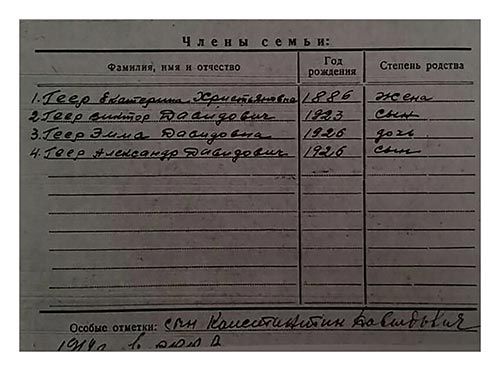 Члены семьи:
Фамилия, имя и отчество Год рождения Степень родства
1. Геер Екатерина Христьяновна 1886 жена
2. Геер Виктор Давидович 1923 сын
3. Геер Эмма Давидовна 1926 дочь
4. Геер Александр Давидович 1926 сын
Особые отметки: сын Константин Давыдович
1914г. в